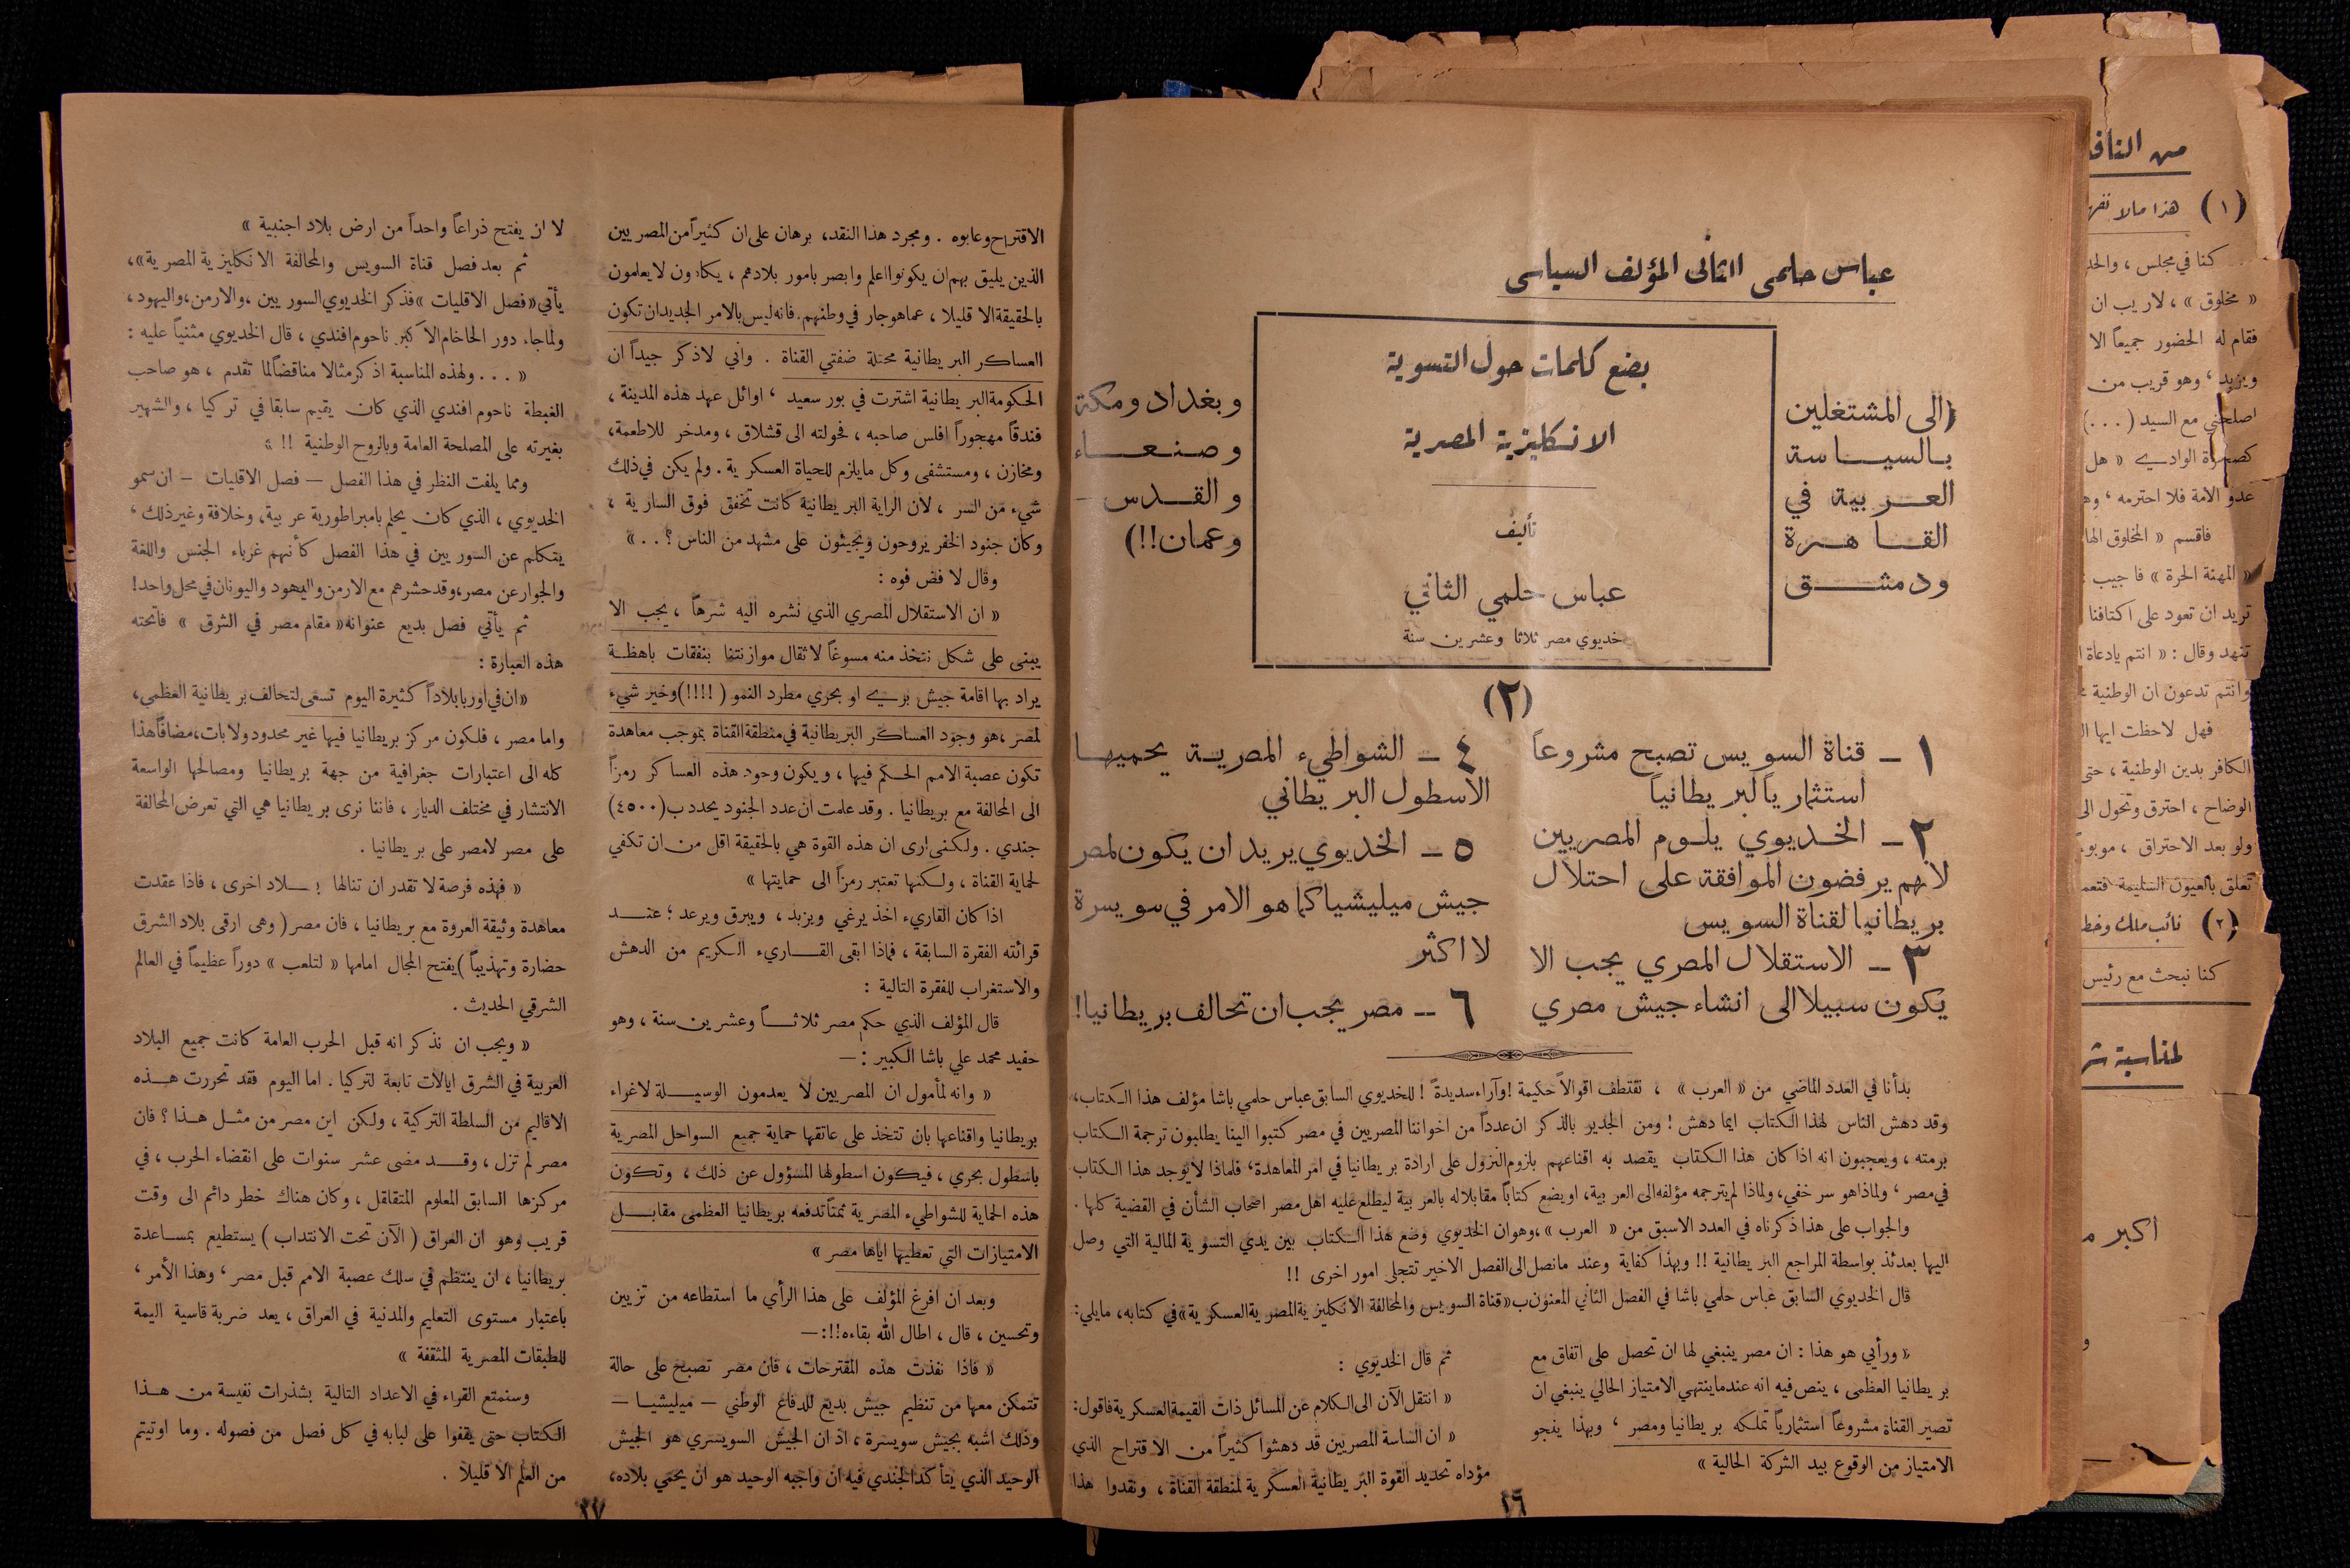 عباس حلمي الثاني المؤلف السياسي
(الى المشتغلين
بالسياسة
العربية في
القاهرة
ودمشق
بضع كلمات حول التسوية
الانكليزية المصرية
تأليف
عباس حلمي الثاني
خديوي مصر ثلاثا وعشرين سنة
وبغداد ومكة
وصنعاء
والقدس –
وعمان!!)
(٢)
١ – قناة السويس تصبح مشروعاً
استثمارياً لبريطانيا
٢ – الخديوي يلوم المصريين
لانهم يرفضون الموافقة على احتلال
بريطانيا لقناة السويس
٣ – الاستقلال المصري يجب الا
يكون سبيلا الى انشاء جيش مصري
٤ – الشواطيء المصرية يحميها
الاسطول البريطاني
٥ – الخديوي يريد ان يكون لمصر
جيش ميليشيا كما هو الامر في سويسرة
لا اكثر
٦ – مصر يجب ان تحالف بريطانيا!
بدأنا في العدد الماضي من « العرب » ، نقتطف اقوالاً حكيمة ! وآراء سديدةً ! للخديوي السابق عباس حلمي باشا مؤلف هذا الكتاب،
وقد دهش الناس لهذا الكتاب ايما دهش ! ومن الجدير بالذكر ان عدداً من اخواننا المصريين في مصر كتبوا الينا يطلبون ترجمة الكتاب
برمته ، ويعجبون انه اذا كان هذا الكتاب يقصد به اقناعهم بلزوم النزول على ارادة بريطانيا في امر المعاهدة، فلماذا لا يوجد هذا الكتاب
في مصر ، ولماذا هو سر خفي، ولماذا لم يترجمه مؤلفه الى العربية، او يضع كتاباً مقابلا له بالعربية ليطلع عليه اهل مصر اصحاب الشأن في القضية كلها .
والجواب على هذا ذكرناه في العدد الاسبق من « العرب »، وهو ان الخديوي وضع هذا الكتاب بين يدي التسوية المالية التي وصل
اليها بعدئذ بواسطة المراجع البريطانية !! وبهذا كفاية وعند ما نصل الى الفصل الاخير تتجلى امور اخرى !!
قال الخديوي السابق عباس حلمي باشا في الفصل الثاني المعنون ب«قناة السويس والمحالفة الانكليزية المصرية العسكرية» في كتابه، مايلي:
« ورأيي هو هذا : ان مصر ينبغي لها ان تحصل على اتفاق مع
بريطانيا العظمى ، ينص فيه انه عندما ينتهي الامتياز الحالي ينبغي ان
تصير القناة مشروعاً استثمارياً تملكه بريطانيا ومصر ، وبهذا ينجو
الامتياز من الوقوع بيد الشركة الحالية »
ثم قال الخديوي :
« انتقل الآن الى الكلام عن المسائل ذات القيمة العسكرية فاقول:
« ان الساسة المصريين قد دهشوا كثيراً من الاقتراح الذي
مؤداه تحديد القوة البريطانية العسكرية لمنطقة القناة ، ونقدوا هذا
٢٦
الاقتراح وعابوه . ومجرد هذا النقد، برهان على ان كثيراً من المصريين
الذين يليق بهم ان يكونوا اعلم وابصر بامور بلادهم ، يكادون لا يعلمون
بالحقيقة الا قليلا ، عما هو جار في وطنهم. فانه ليس بالامر الجديد ان تكون
العساكر البريطانية محتلة ضفتي القناة . واني لاذكر جيداً ان
الحكومة البريطانية اشترت في بور سعيد ، اوائل عهد هذه المدينة ،
فندقاً مهجوراً افلس صاحبه ، فحولته الى قشلاق ، ومدخر للاطعمة،
ومخازن ، ومستشفى وكل مايلزم للحياة العسكرية . ولم يكن في ذلك
شيء من السر ، لان الراية البريطانية كانت تخفق فوق السارية ،
وكان جنود الخفر يروحون ويجيئون على مشهد من الناس ؟ . . »
وقال لا فض فوه :
« ان الاستقلال المصري الذي نشره اليه شرهاً ، يجب الا
يبنى على شكل نتخذ منه مسوغاً لاثقال موازنتنا بنفقات باهظة
يراد بها اقامة جيش بري او بحري مطرد النمو (!!!!) وخير شيء
لمصر ، هو وجود العساكر البريطانية في منطقة القناة بموجب معاهدة
تكون عصبة الامم الحكم فيها ، ويكون وجود هذه العساكر رمزاً
الى المحالفة مع بريطانيا . وقد علمت ان عدد الجنود يحدد ب (٤٥٠٠)
جندي . ولكني ارى ان هذه القوة هي بالحقيقة اقل من ان تكفي
لحماية القناة ، ولكنها تعتبر رمزاً الى حمايتها »
اذا كان القاريء اخذ يرغي ويزبد ، ويبرق ويرعد ؛ عند
قرائته الفقرة السابقة ، فماذا ابقى القاريء الكريم من الدهش
والاستغراب للفقرة التالية :
قال المؤلف الذي حكم مصر ثلاثاً وعشرين سنة ، وهو
حفيد محمد علي باشا الكبير : –
« وانه لمأمول ان المصريين لا يعدمون الوسيلة لاغراء
بريطانيا واقناعها بان تتخذ على عاتقها حماية جميع السواحل المصرية
باسطول بحري ، فيكون اسطولها المسؤول عن ذلك ، وتكون
هذه الحماية للشواطيء المصرية ثمناً تدفعه بريطانيا العظمى مقابل
الامتيازات التي تعطيها اياها مصر »
وبعد ان افرغ المؤلف على هذا الرأي ما استطاعه من تزيين
وتحسين ، قال ، اطال الله بقاءه!!: –
« فاذا نفذت هذه المقترحات ، فان مصر تصبح على حالة
تتمكن معها من تنظيم جيش بديع للدفاع الوطني – ميليشيا –
وذلك اشبه بجيش سويسرة ، اذ ان الجيش السويسري هو الجيش
الوحيد الذي يتأكد الجندي فيه ان واجبه الوحيد هو ان يحمي بلاده،
لا ان يفتح ذراعاً واحداً من ارض بلاد اجنبية »
ثم بعد فصل قناة السويس والمحالفة الانكليزية المصرية»،
يأتي «فصل الاقليات» فذكر الخديوي السوريين ، والارمن، واليهود،
ولما جاء دور الحاخام الاكبر ناحوم افندي ، قال الخديوي مثنياً عليه :
« . . . ولهذه المناسبة اذكر مثالا مناقضاً لما تقدم ، هو صاحب
الغبطة ناحوم افندي الذي كان يقيم سابقا في تركيا ، والشهير
بغيرته على المصلحة العامة وبالروح الوطنية !! »
ومما يلفت النظر في هذا الفصل – فصل الاقليات – ان سمو
الخديوي ، الذي كان يحلم بامبراطورية عربية، وخلافة وغير ذلك ،
يتكلم عن السوريين في هذا الفصل كأنهم غرباء الجنس واللغة
والجوار عن مصر، وقد حشرهم مع الارمن واليهود واليونان في محل واحد!
ثم يأتي فصل بديع عنوانه « مقام مصر في الشرق » فاتحته
هذه العبارة :
«ان في اوربا بلاداً كثيرة اليوم تسعى لتحالف بريطانية العظمى،
واما مصر ، فلكون مركز بريطانيا فيها غير محدود ولا بات، مضافاً هذا
كله الى اعتبارات جغرافية من جهة بريطانيا ومصالحها الواسعة
الانتشار في مختلف الديار ، فاننا نرى بريطانيا هي التي تعرض المحالفة
على مصر لا مصر على بريطانيا .
« فهذه فرصة لا تقدر ان تنالها بلاد اخرى ، فاذا عقدت
معاهدة وثيقة العروة مع بريطانيا ، فان مصر ( وهي ارقى بلاد الشرق
حضارة وتهذيباً ) يفتح المجال امامها « لتلعب » دوراً عظيماً في العالم
الشرقي الحديث .
« ويجب ان نذكر انه قبل الحرب العامة كانت جميع البلاد
العربية في الشرق ايالات تابعة لتركيا . اما اليوم فقد تحررت هذه
الاقاليم من السلطة التركية ، ولكن اين مصر من مثل هذا ؟ فان
مصر لم تزل ، وقد مضى عشر سنوات على انقضاء الحرب ، في
مركزها السابق المعلوم المتقلقل ، وكان هناك خطر دائم الى وقت
قريب وهو ان العراق ( الآن تحت الانتداب ) يستطيع بمساعدة
بريطانيا ، ان ينتظم في سلك عصبة الامم قبل مصر ، وهذا الأمر ،
باعتبار مستوى التعليم والمدنية في العراق ، يعد ضربة قاسية اليمة
للطبقات المصرية المثقفة »
وسنمتع القراء في الاعداد التالية بشذرات نفيسة من هذا
الكتاب حتى يقفوا على لبابه في كل فصل من فصوله . وما اوتيتم
من العلم الا قليلا .
٢٧
من
(١) هذا مالا
كنا في مجلس ،
« مخلوق » ، لاريب ان
فقام له الحضور جميعاً الا
ويزيد ، وهو قريب من
اصلحني مع السيد (...)
« هل
عدو الامة فلا احترمه ،
فاقسم « المخلوق
« المهنة الحرة » فاجيب :
تريد ان تعود على اكتافنا
تنهد وقال : « انتم يادعاة
وانتم تدعون ان الوطنية
فهل لاحظت ايها
الكافر بدين الوطنية ، حتى
الوضاح ، احترق وتحول الى
ولو بعد الاحتراق ،
تعلق بالعيون السليمة
(٢) نائب ملك
كنا نبحث مع رئيس
لمناسبة
اكبر
و